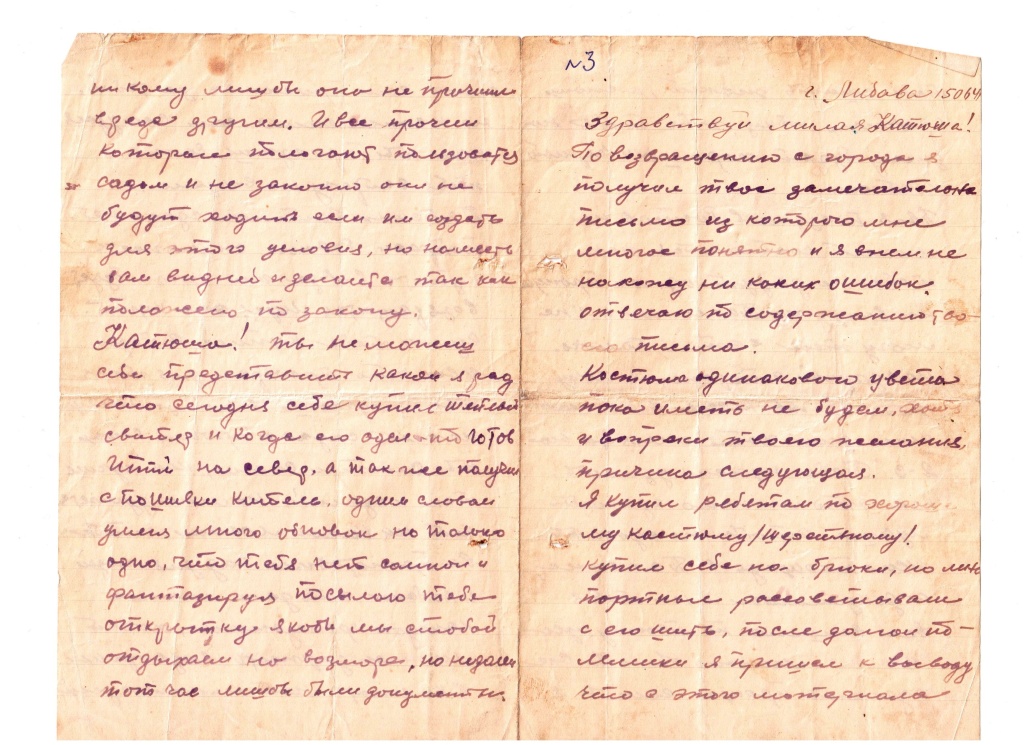 N3
г. Либава 150641
Здравствуй милая Катюша!
По возвращению с города я
получил твое замечательна
письмо из которого мне
многое понятно и я в нем не
нахожу ни каких ошибок.
отвечаю по содержанию тво-
его письма.
Костюма одинакового цвета
пока иметь не будем, хоть
и вопреки твоего желания,
причина следующая.
Я купил ребятам по хороше
му костюму/шерстяному/!
купил себе на брюки, но мне
портные рассоветывали
с его шить, после долгой по-
мешки я пришел к выводу
что с этого материала
ни кому лишбы оно не причини
вреда другим. И все прочии
которые полагают пользоватся
садом и не законно они не
будут ходить если им создать
для этого условия, но на месть
вам видней и делаите так как
положено по закону.
Катюша! ты не можеш
себе представить какой я рад
что сегодня себе купил теплый
свитер и когда его одел то готов
итти на север, а так же получил
с пошивки китель. одним словом
умея много обновок но только
одно, что тебя нет самной и
фантазируя посылаю тебе
открытку якобы мы стобой
отдыхаем на взморье, но недалек
тот час лишбы были документы.